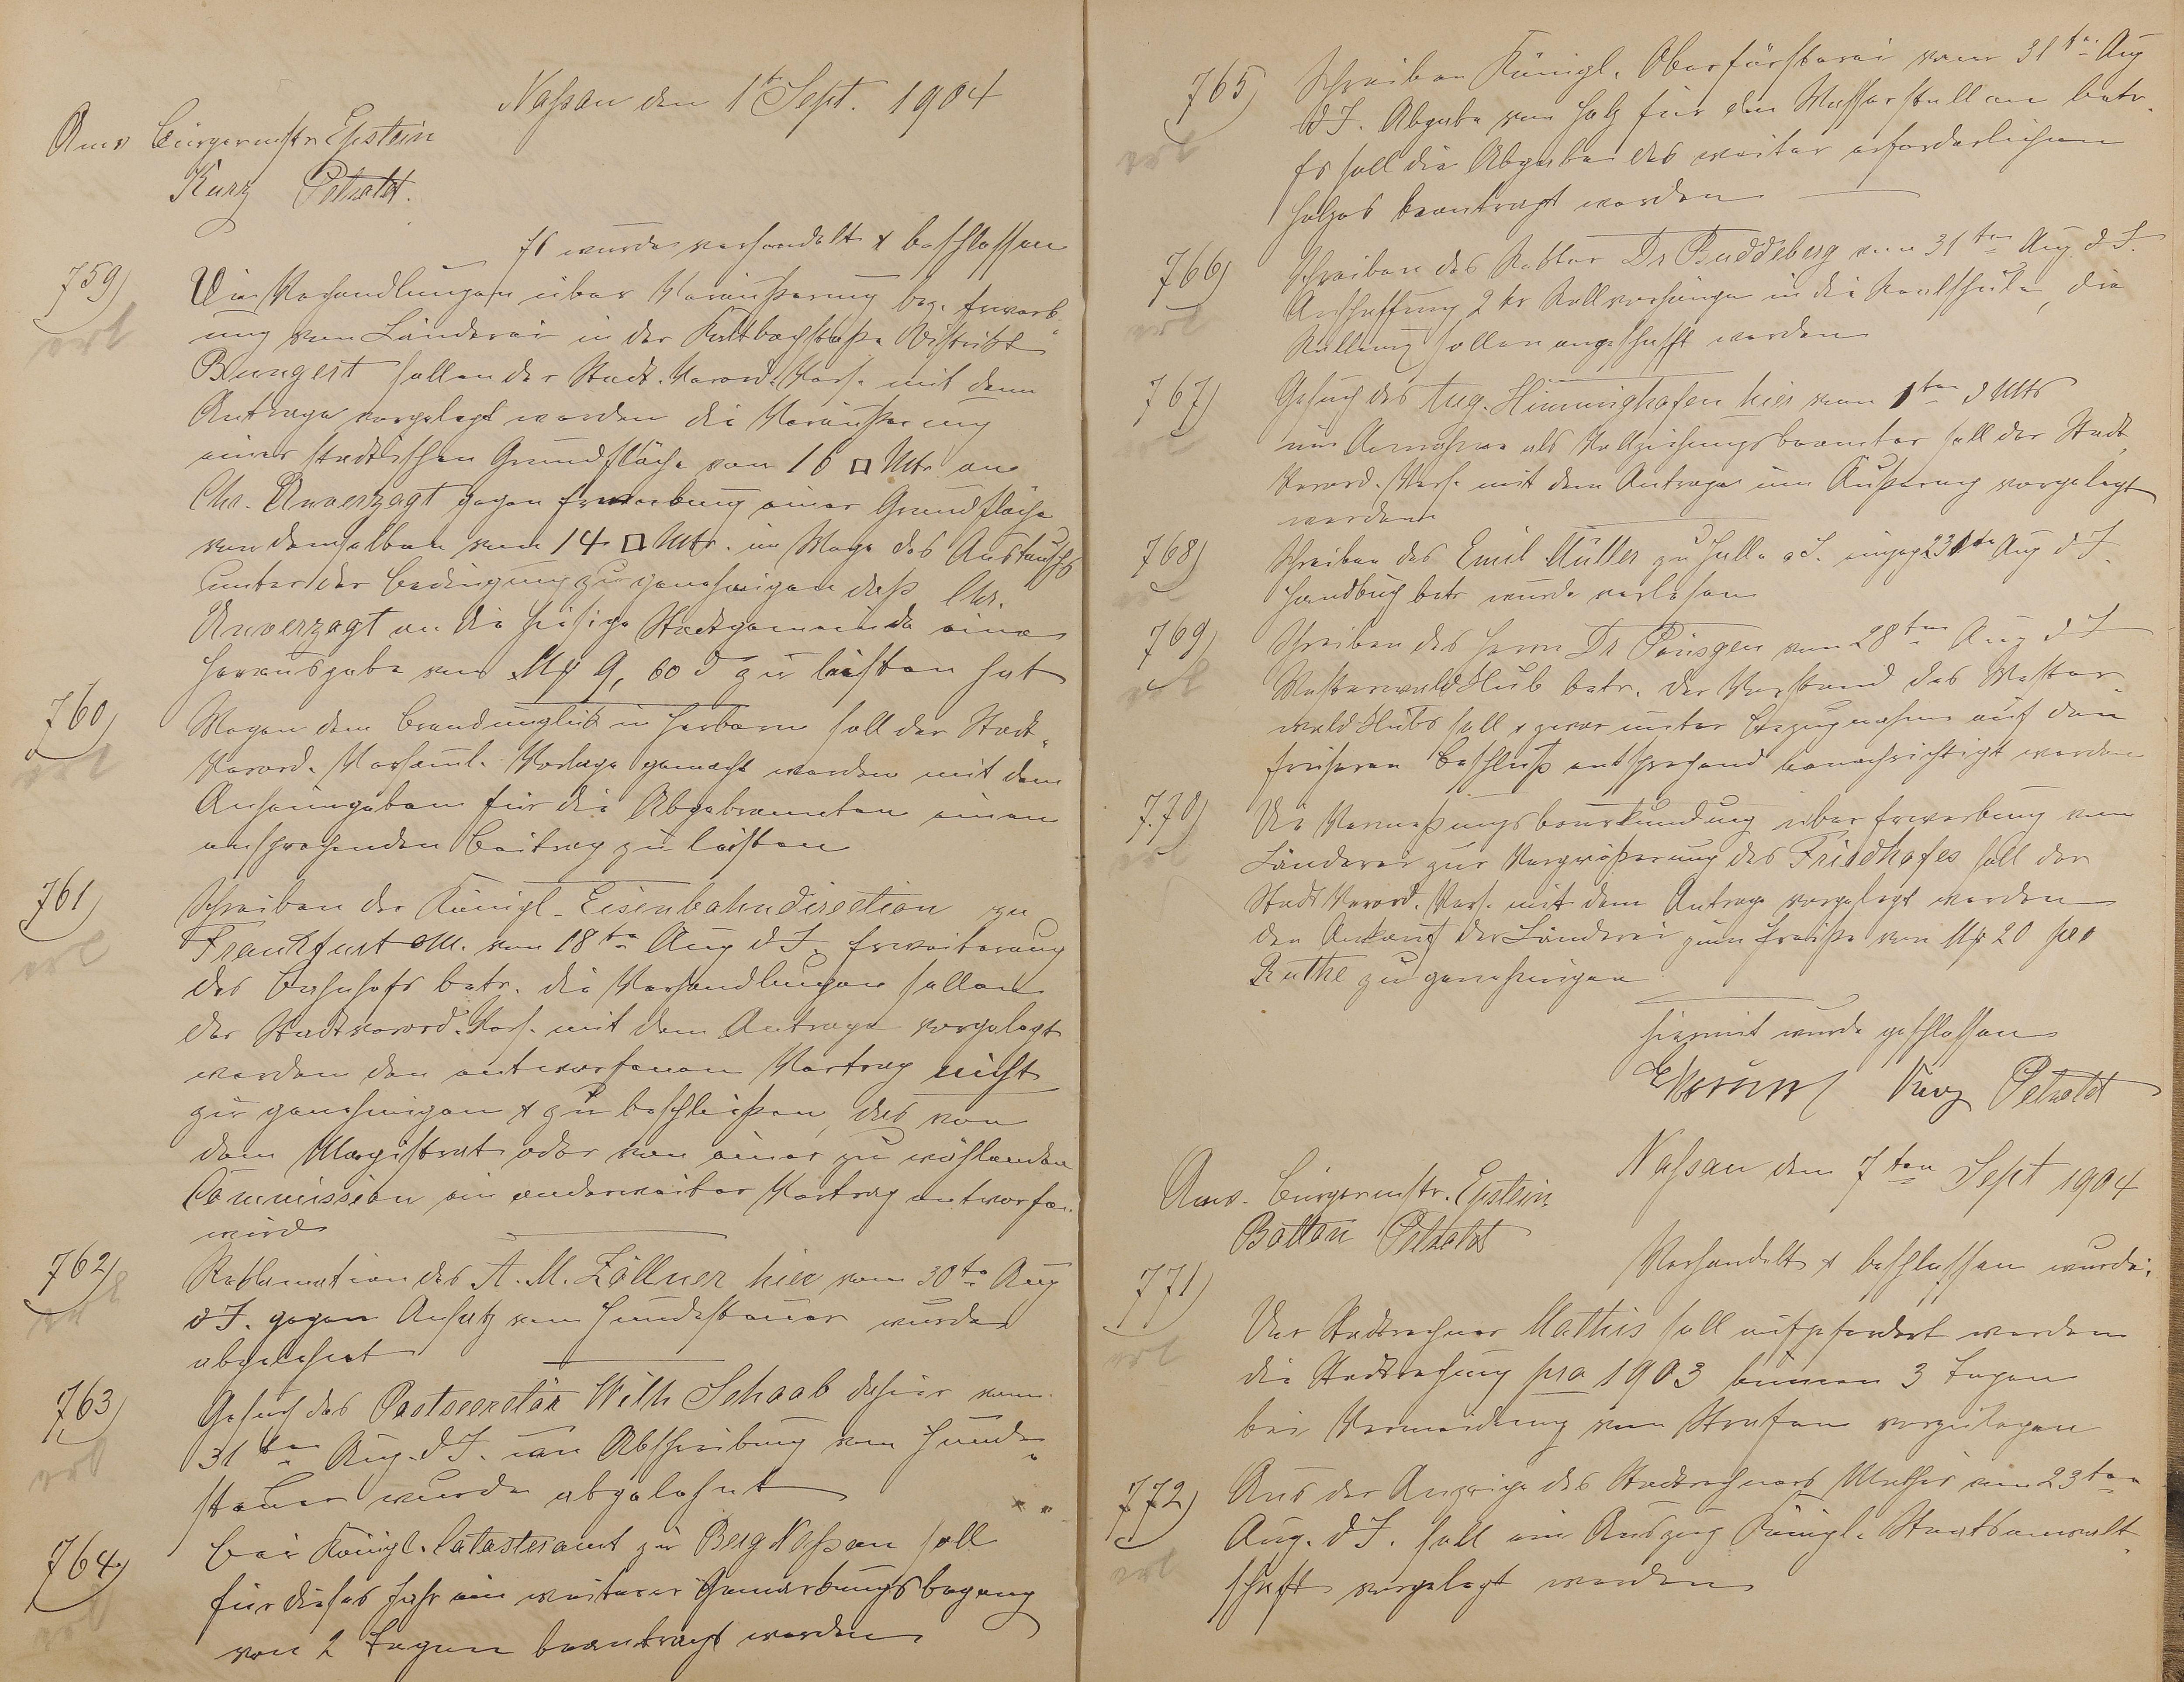 Naßau den 1t Sept. 1904
Anw Bürgermstr Epstein
Kurz Petzoldt.
Es wurde verhandelt & beschlossen
759) Die Verhandlungen über Veräußerung bez. Erwerb-
erl
ung von Länderei in der Kaltbachstraße Distrikt
Bungert sollen der Stadt. Verord. Vers. mit dem
Antrage vorgelegt werden die Veräußerung
einer städtischen Grundfläche von 16 □ Mtr an
Chr. Unverzagt gegen Erwerbung einer Grundfläche
von demselben von 14 □ Mtr. im Wege des Austauschs
unter der Bedingung zu genehmigen daß Chr.
Unverzagt an die hiesige Stadtgemeinde eine
Herausgabe von Mk 9, 60 d zu leisten hat
760) Wegen dem Brandunglück in Herborn soll der Stadt-
erl
Verord. Versaml. Vorlage gemacht werden mit dem
Anheimgeben für die Abgebrannten einen
ansprechenden Beitrag zu leisten
761) Schreiben der Königl. Eisenbahndirection zu
Frankfurt a/M. vom 18ten Aug d J. Erweiterung
erl
des Bahnhofs betr. die Verhandlungen sollen
der Stadtverord. Vers. mit dem Antrage vorgelegt
werden den entworfenen Vertrag nicht
zu genehmigen & zu beschließen, das von
dem Magistrat oder von einer zu wählenden
Commission ein anderweiter Vertrag entworfen
wird
762) Reklamation des A. M. Zöllner hier vom 30ten Aug
erl
d J. gegen Ansatz von Hundesteuer wurde
abgelehnt
763) Gesuch des Postsecretär Wilh Schaab dahier vom
31ten Aug. d J. um Abschreibung von Hunde-
erl
steuer wurde abgelehnt
764) Bei Königl. Catasteramt zu Berg Naßau soll
für dieses Jahr ein weiterer Gemarkungsbegang
erl
von 2 Tagen beantragt werden
765) Schreiben Königl. Oberförsterei vom 31ten Aug
d J. Abgabe von Holz für den betr.
erl
Es soll die Abgabe des weiter erforderlichen
Holzes beantragt werden
766) Schreiben des Rektor Dr Buddeberg vom 31ten Aug. d J.
Anschaffung 2 Rollvorhänge in die Realschule, die
erl
sollen angeschafft werden
767) Gesuch des Aug. Himmighofen hier vom 1ten d Mts
erl
um Annahme als Vollziehungsbeamter soll der Stadt
Verord. Vers. mit dem Antrage um Äußerung vorgelegt
werden
768) Schreiben des Emil Müller zu Halle a S. eingeg 23ten Aug d J.
erl
Handbuch betr wurde verlesen
769) Schreiben des Herrn Dr Poensgen vom 28ten Aug d J
erl
Westerwaldklub betr. Der Vorstand des Wester-
waldklubs soll & zwar unter Bezugnahme auf den
früheren Beschluß entsprechend benachrichtigt werden
770) Die Vermeßungsbeurkundung über Erwerbung von
erl
Länderei zur Vergrößerung des Friedhofes soll der
Stadt Verord. Vers. mit dem Antrage vorgelegt werden
den Ankauf der Länderei zum Preise von Mk 20 per
Ruthe zu genehmigen
Hiermit wurde geschlossen
Epstein Kurz Petzoldt
Naßau den 7ten Sept 1904
Anw. Bürgermstr. Epstein.
Balton Petzoldt
Verhandelt & beschlossen wurde:
771) Der Stadtrechner Mathis soll aufgefordert werden
erl
die Stadtrechnung pro 1903 binnen 3 Tagen
bei Vermeidung von Strafen vorzulegen
772) Aus der Anzeige des Stadtrechners Mathis vom 23ten
Aug. d J. soll ein Auszug Königl. Staatsanwalt-
erl
schaft vorgelegt werden